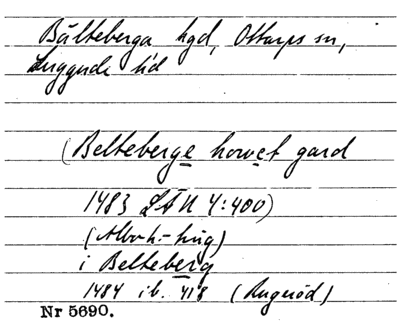 Bälteberga hgd, Ottarps sn,
Luggude hd
(Belteberge howet gard
1483 LÄU 4:400)
(Albo h.-ting)
i Belteberg
1484 ib. 418 (Rugeröd)
Nr 5690.